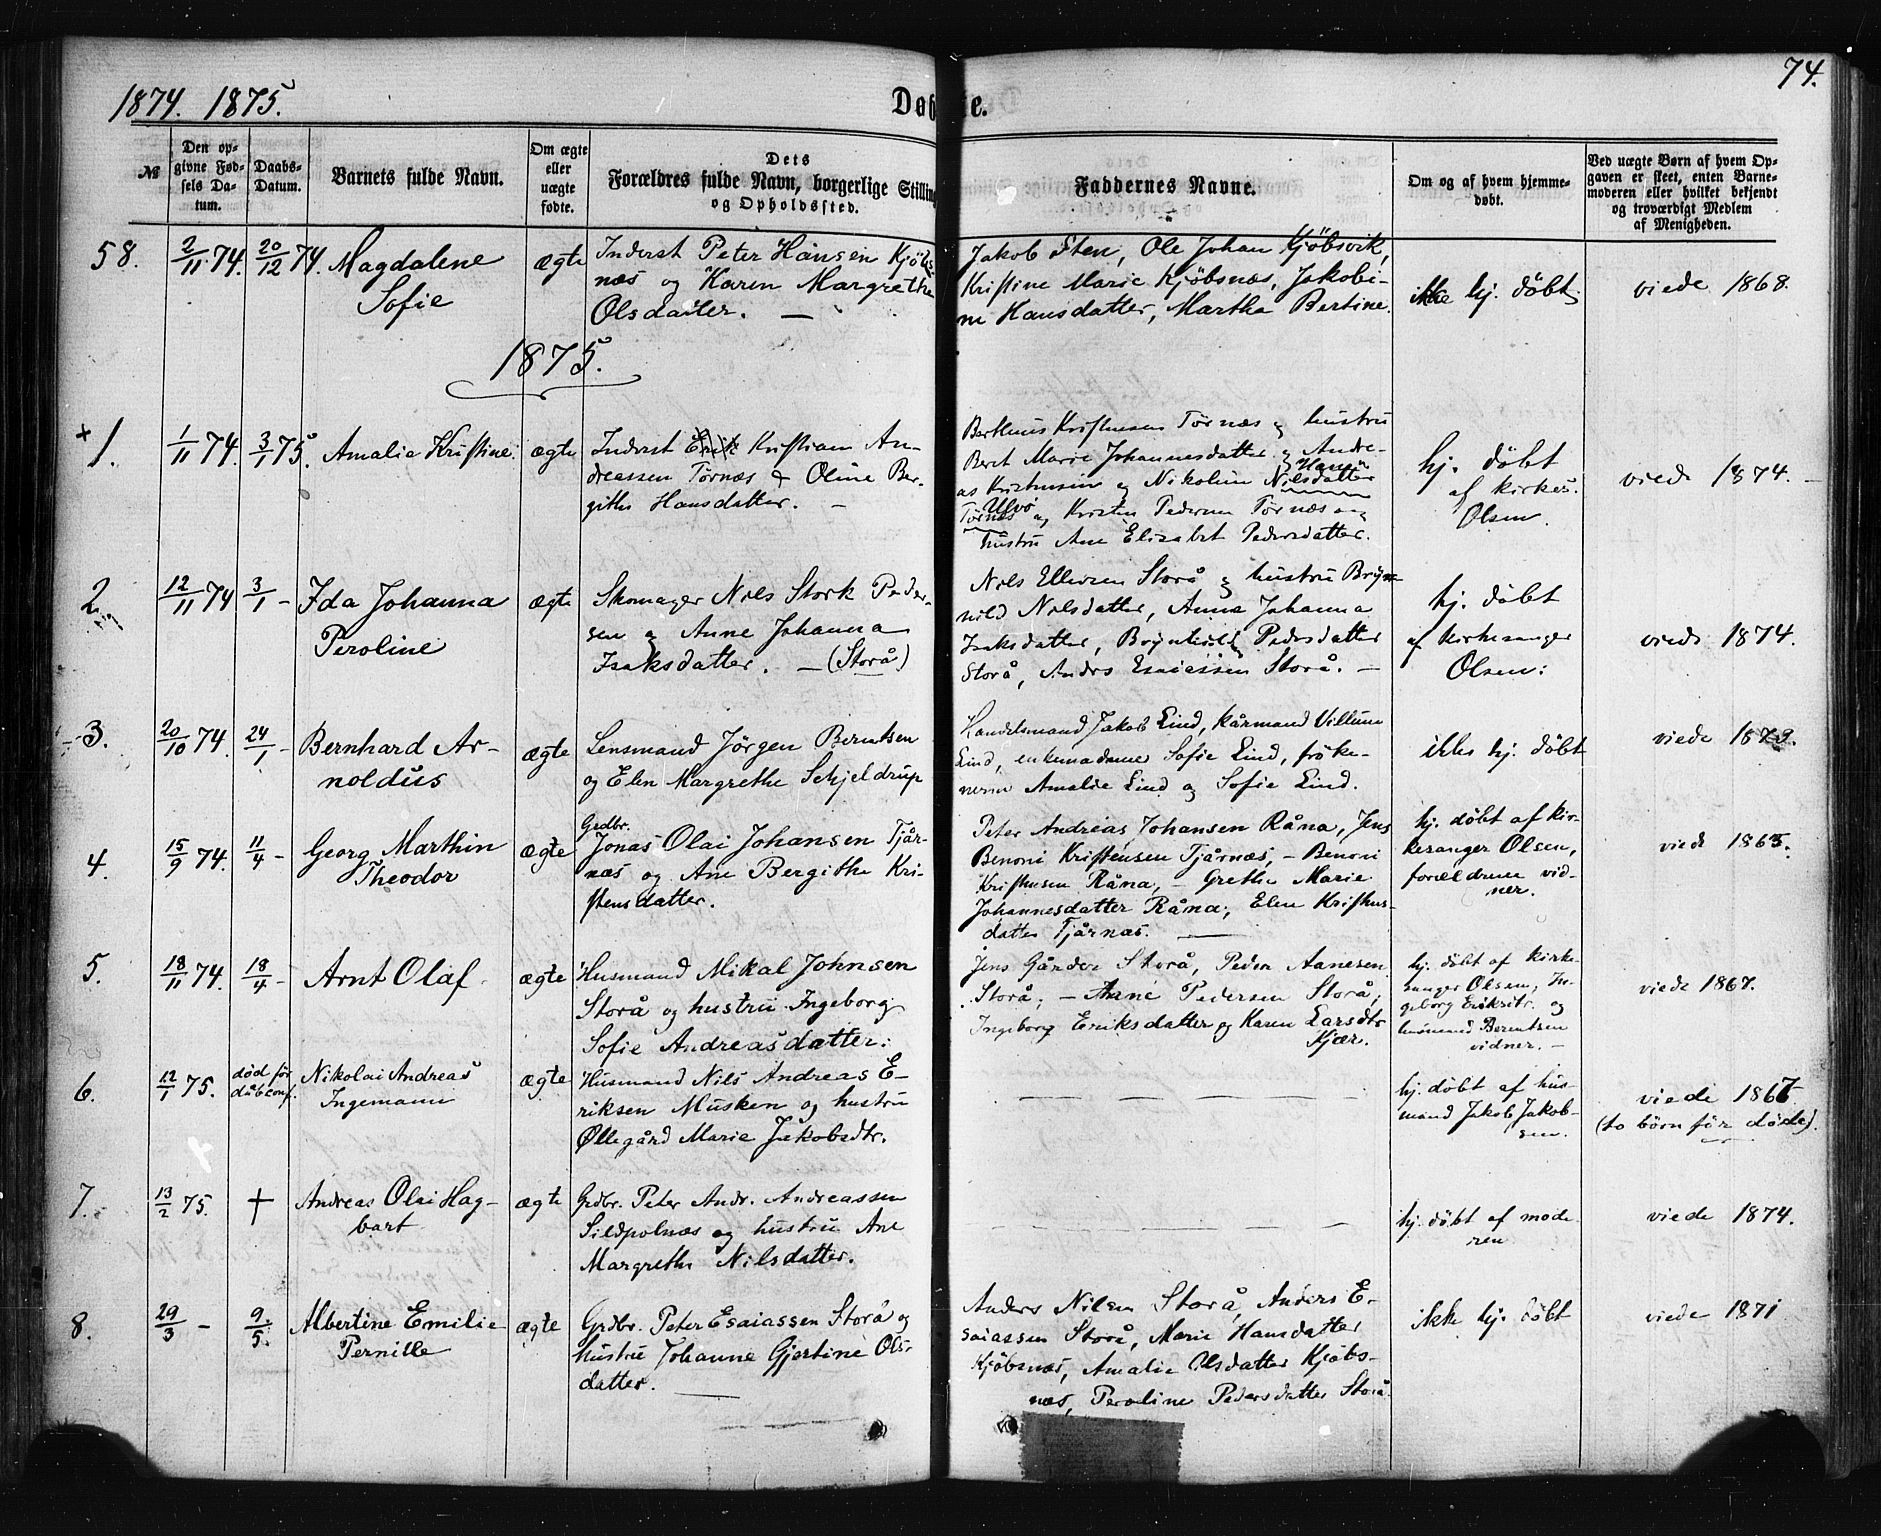 1874. 1875.
Døbte.
74.
№
Den op-
givne Fød-
sels Da-
tum.
Daabs-
Datum.
Barnets fulde Navn.
Om ægte
eller
uægte
fødte.
Dets
Forældres fulde Navn, borgerlige Stilling
og Opholdssted.
Faddernes Navne.
Om og af hvem hjemme-
døbt.
Ved uægte Børn af hvem Op-
gaven er skeet, enten Barne-
moderen eller hvilket bekjendt
og troværdigt Medlem
af Menigheden.
58.
2/11 74.
20/12 74.
Magdalene
Sofie
ægte
Inderst Peter Hansen Kjöbs-
næs og Karen Margrethe
Olsdatter. —
Jakob Sten, Ole Johan Kjöbsvik,
Kristine Marie Kjöbsnæs, Jakobi-
ne Hansdatter, Martha Bertine.
ikke hj. döbt.
viede 1868.
1875.
+ 1.
1/11 74.
3/1 75.
Amalie Kristine.
ægte
Inderst Erik Kristian An-
dreassen Tørnæs & Oline Ber-
githe Hansdatter. —
Berthius Kristensen Tørnæs og hustru
Beret Marie Johannesdatter, Andre-
as Kristensen og Nikoline Nilsdatter
Hans
Tørnæs og Kristen Pedersen Tørnæs og
Ulvø
hustru Ane Elisabet Pedersdatter.
hj. döbt
af kirkes.
Olsen.
viede 1874. —
2.
12/11 74
3/1 —
Ida Johanna
Peroline
ægte
Skomager Nils Stork Peder-
sen og Anne Johanna
Isaksdatter. — (Storå)
Nils Ellevsen Storå og hustru Bryn-
hild Nilsdatter, Anna Johanna
Isaksdatter, Brynhild Pedersdatter
Storå, Anders Esaiassen Storå. —
hj. döbt
af kirkesanger
Olsen:
viede 1874.
3.
20/10 74.
24/1 —
Bernhard Ar-
noldus
ægte
Lensmand Jörgen Berntsen
og Elen Margrethe Schjeldrup
Handelsmand Jakob Lind, kårmand Villum
Lind, enkemadame Sofie Lind, fröke-
nerne Amalie Lind og Sofie Lind.
ikke hj. döbt
viede
4.
15/9 74.
11/4 —
Georg Marthin
Theodor
ægte
Grdbr.
Jonas Olai Johansen Tjår-
næs og Ane Bergithe Kri-
stensdatter.
Peter Andreas Johansen Råna, Jens
Benoni Kristensen Tjårnæs, — Benoni
Kristensen Råna, — Grethe Marie
Johannesdatter Råna, Elen Kristens-
datter Tjårnæs. —
hj. döbt af kir-
kesanger Olsen,
forældrene vid-
ner.
viede 1865.
5.
18/11 74.
18/4 —
Arnt Olaf
ægte
Husmand Mikal Johnsen
Storå og hustru Ingeborg
Sofie Andreasdatter.
Jens Gårder Storå, Peder Aanesen
Storå, — Aane Pedersen Storå,
Ingeborg Eriksdatter og Karen Larsdtr
Kjær.
hj. döbt af kirke-
sanger Olsen, In-
geborg Eriksdtr. og
husmand Berentsen
vidner. —
viede 1867.
6.
12/1 75.
död för
dåbconf.
Nikolai Andreas
Ingemann
ægte
Husmand Nils Andreas E-
riksen Musken og hustru
Øllegård Marie Jakobsdtr.
— — — —
hj. döbt af hus-
mand Jakob Jakob-
sen.
viede 1867
(to börn för döde).
7.
13/2 75.
+
Andreas Olai Hag-
bart
ægte
Grdbr. Peter Andr. Andreassen
Sildpolnæs og hustru Ane
Margrethe Nilsdatter.
— — — —
hj. döbt af mode-
ren
viede 1874.
8.
29/3 —
9/5.
Albertine Emilie
Pernille
ægte
Grdbr. Peter Esaiassen Storå og
hustru Johanne Gjertine Ols-
datter. —
Anders Nilsen Storå, Anders E-
saiassen Storå, Marie Hansdatter
Kjöbsnæs, Amalie Olsdatter Kjöbs-
næs, Peroline Pedersdatter Storå
ikke hj. döbt
viede 1871